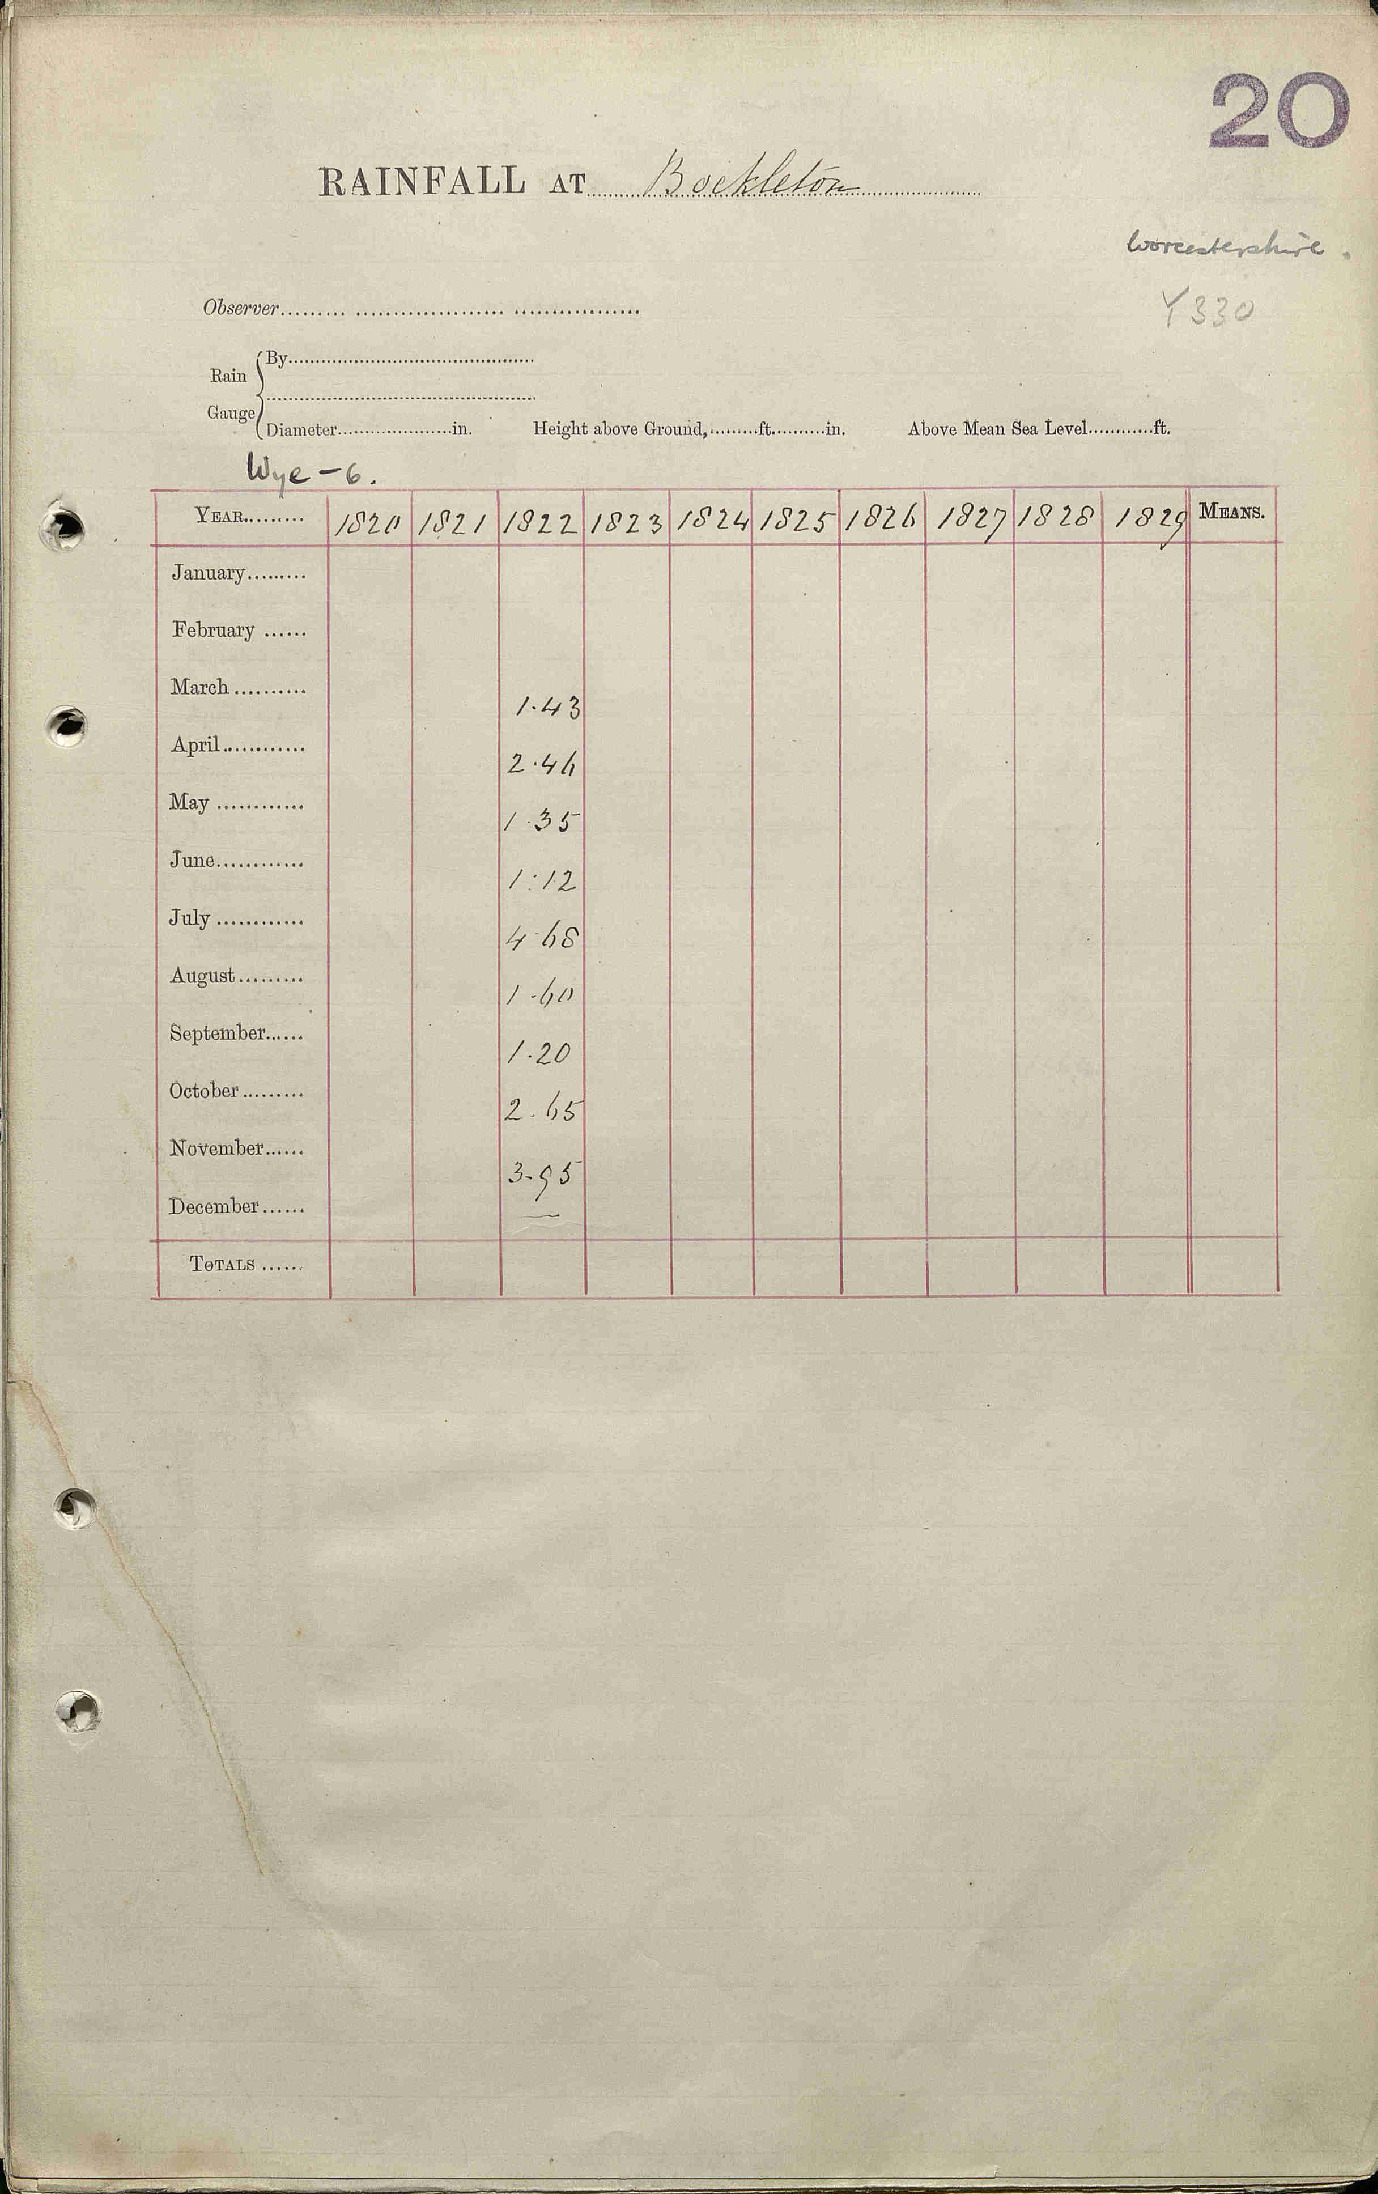 20
RAINFALL AT Bockleton
Worcestershire.
Observer
Y330
Rain Gauge { By
Diameter in. Height above Ground, ft. in. Above Mean Sea Level ft.
Wye - 6.
YEAR 1820 1821 1822 1823 1824 1825 1826 1827 1828 1829 MEANS.
January
February
March 1.43
April 2.46
May 1.35
June 1.12
July 4.68
August 1.60
September 1.20
October 2.65
November 3.95
December —
TOTALS